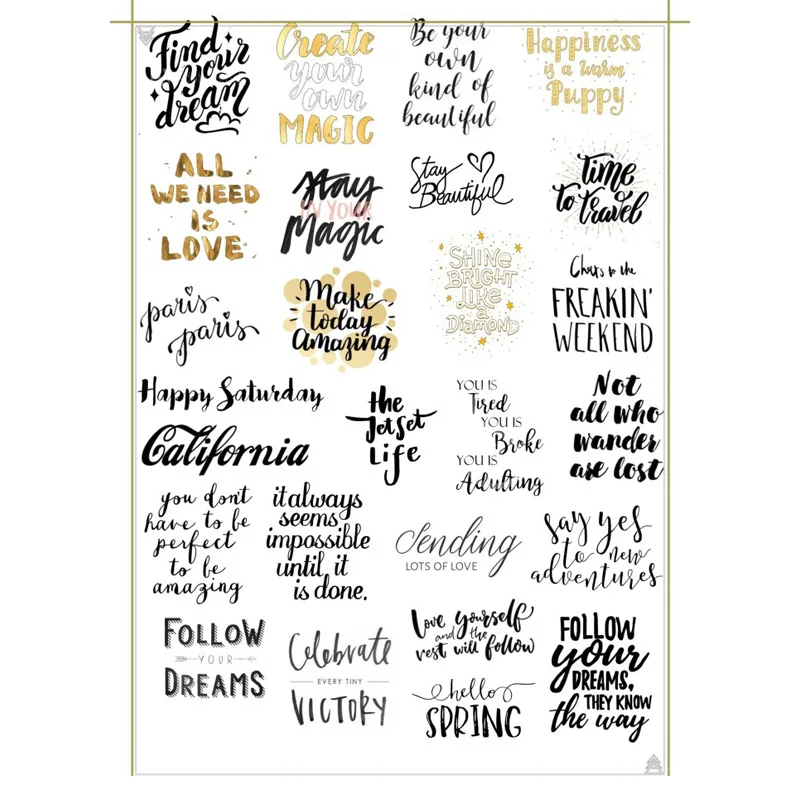 Find
your
dream
Create
your
own
MAGIC
Be your
own
kind of
beautiful
Happiness
is a warm
Puppy
ALL
WE NEED
IS
LOVE
Stay
IN YOUR
Magic
Stay
Beautiful
Time
to travel
paris
paris
Make
today
Amazing
SHINE
BRIGHT
LIKE
a
DIAMOND
Cheers to the
FREAKIN'
WEEKEND
Happy Saturday
California
the
Jet Set
Life
YOU IS
Tired
YOU IS
Broke
YOU IS
Adulting
Not
all who
wander
are lost
you dont
have to be
perfect
to be
amazing
it always
seems
impossible
until it
is done.
Sending
LOTS OF LOVE
say yes
to new
adventures
FOLLOW
YOUR
DREAMS
Celebrate
EVERY TINY
VICTORY
Love yourself
and the
rest will follow
hello
SPRING
FOLLOW
your
DREAMS,
THEY KNOW
the way